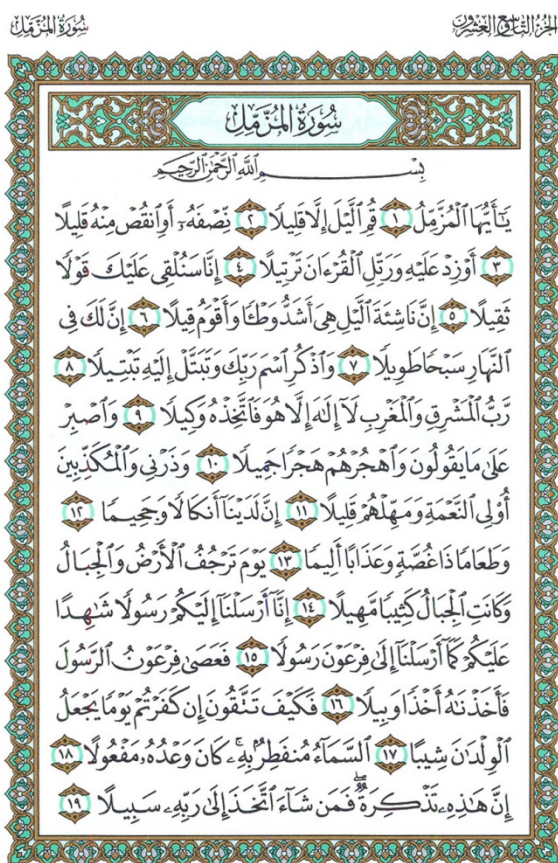 الجزء التاسع والعشرون
سورة المزمل
سُورَةُ المُزَّمِّلِ
بِسْمِ اللَّهِ الرَّحْمَٰنِ الرَّحِيمِ
يَٰٓأَيُّهَا ٱلْمُزَّمِّلُ ١ قُمِ ٱلَّيْلَ إِلَّا قَلِيلًا ٢ نِّصْفَهُۥٓ أَوِ ٱنقُصْ مِنْهُ قَلِيلًا
٣ أَوْ زِدْ عَلَيْهِ وَرَتِّلِ ٱلْقُرْءَانَ تَرْتِيلًا ٤ إِنَّا سَنُلْقِى عَلَيْكَ قَوْلًا
ثَقِيلًا ٥ إِنَّ نَاشِئَةَ ٱلَّيْلِ هِىَ أَشَدُّ وَطْـًٔا وَأَقْوَمُ قِيلًا ٦ إِنَّ لَكَ فِى
ٱلنَّهَارِ سَبْحًا طَوِيلًا ٧ وَٱذْكُرِ ٱسْمَ رَبِّكَ وَتَبَتَّلْ إِلَيْهِ تَبْتِيلًا ٨
رَّبُّ ٱلْمَشْرِقِ وَٱلْمَغْرِبِ لَآ إِلَٰهَ إِلَّا هُوَ فَٱتَّخِذْهُ وَكِيلًا ٩ وَٱصْبِرْ
عَلَىٰ مَا يَقُولُونَ وَٱهْجُرْهُمْ هَجْرًا جَمِيلًا ١٠ وَذَرْنِى وَٱلْمُكَذِّبِينَ
أُو۟لِى ٱلنَّعْمَةِ وَمَهِّلْهُمْ قَلِيلًا ١١ إِنَّ لَدَيْنَآ أَنكَالًا وَجَحِيمًا ١٢
وَطَعَامًا ذَا غُصَّةٍ وَعَذَابًا أَلِيمًا ١٣ يَوْمَ تَرْجُفُ ٱلْأَرْضُ وَٱلْجِبَالُ
وَكَانَتِ ٱلْجِبَالُ كَثِيبًا مَّهِيلًا ١٤ إِنَّآ أَرْسَلْنَآ إِلَيْكُمْ رَسُولًا شَٰهِدًا
عَلَيْكُمْ كَمَآ أَرْسَلْنَآ إِلَىٰ فِرْعَوْنَ رَسُولًا ١٥ فَعَصَىٰ فِرْعَوْنُ ٱلرَّسُولَ
فَأَخَذْنَٰهُ أَخْذًا وَبِيلًا ١٦ فَكَيْفَ تَتَّقُونَ إِن كَفَرْتُمْ يَوْمًا يَجْعَلُ
ٱلْوِلْدَٰنَ شِيبًا ١٧ ٱلسَّمَآءُ مُنفَطِرٌۢ بِهِۦ ۚ كَانَ وَعْدُهُۥ مَفْعُولًا ١٨
إِنَّ هَٰذِهِۦ تَذْكِرَةٌ ۖ فَمَن شَآءَ ٱتَّخَذَ إِلَىٰ رَبِّهِۦ سَبِيلًا ١٩